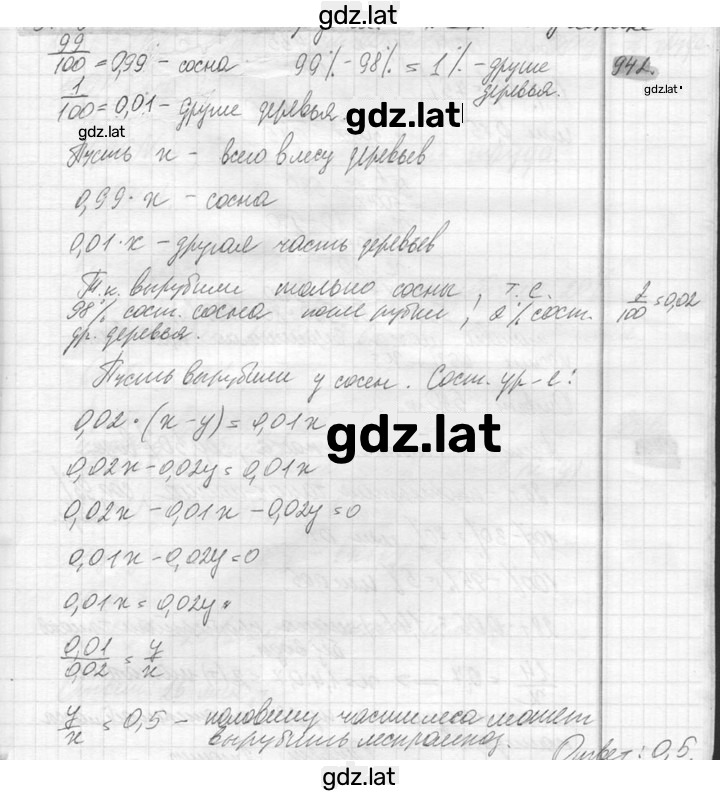 gdz.lat
99/100 = 0,99 - сосна 99% - 98% = 1% - другие деревья.
942.
gdz.lat
1/100 = 0,01 - другие деревья.
gdz.lat
gdz.lat
Пусть x - всего в лесу деревьев
0,99 · x - сосна
0,01 · x - другая часть деревьев
Т.к. вырубили только сосны, т.е.
98% сост. сосна после рубки, 2% сост. 2/100 = 0,02
др. деревья.
Пусть вырубили y сосен. Сост. ур-е:
0,02 · (x - y) = 0,01x
gdz.lat
0,02x - 0,02y = 0,01x
0,02x - 0,01x - 0,02y = 0
0,01x - 0,02y = 0
0,01x = 0,02y
0,01/0,02 = y/x
y/x = 0,5 - половину части леса может
вырубить леспромхоз.
Ответ: 0,5.
gdz.lat